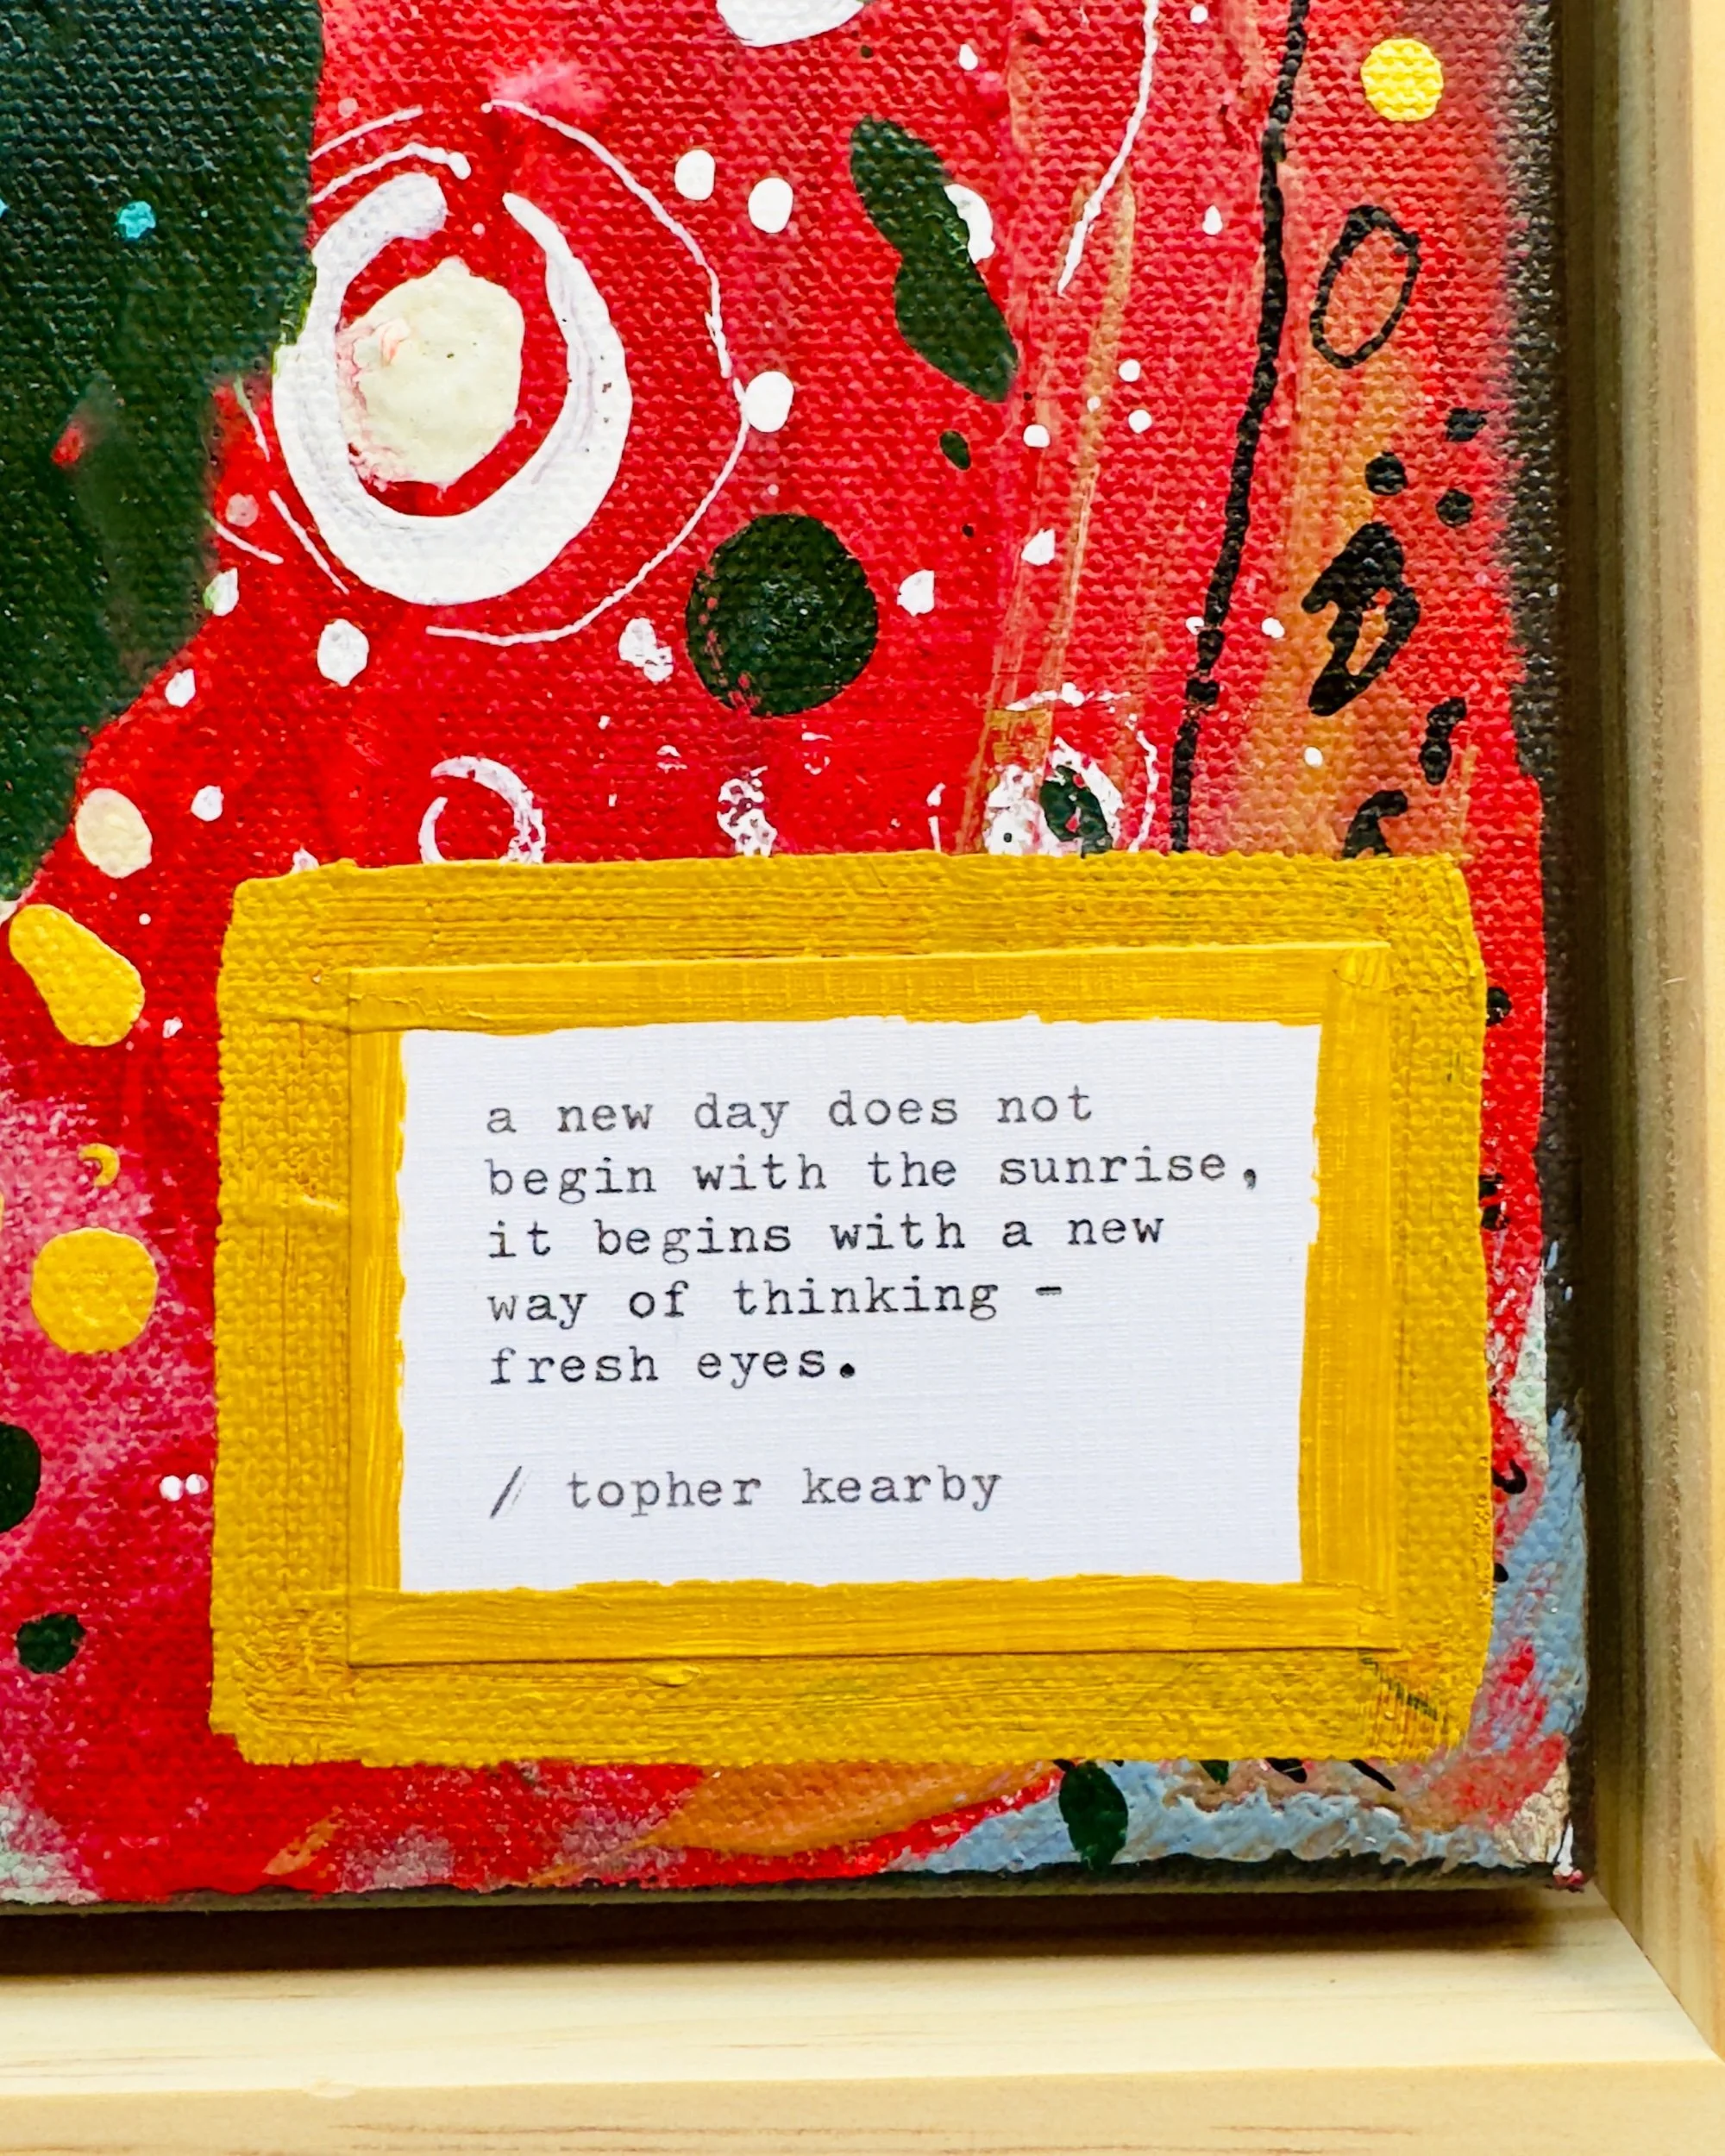 a new day does not
begin with the sunrise,
it begins with a new
way of thinking -
fresh eyes.
/ topher kearby